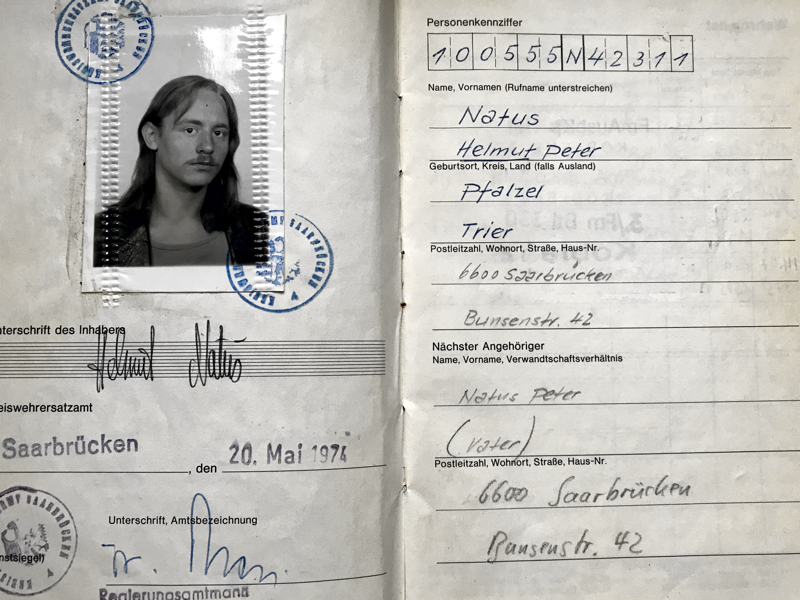 Unterschrift des Inhabers
Helmut Natus
Kreiswehrersatzamt
Saarbrücken
, den 20. Mai 1974
Unterschrift, Amtsbezeichnung
Regierungsamtmann
Personenkennziffer
100555N42311
Name, Vornamen (Rufname unterstreichen)
Natus
Helmut Peter
Geburtsort, Kreis, Land (falls Ausland)
Pfalzel
Trier
Postleitzahl, Wohnort, Straße, Haus-Nr.
6600 Saarbrücken
Bunsenstr. 42
Nächster Angehöriger
Name, Vorname, Verwandtschaftsverhältnis
Natus Peter
(Vater)
Postleitzahl, Wohnort, Straße, Haus-Nr.
6600 Saarbrücken
Bunsenstr. 42